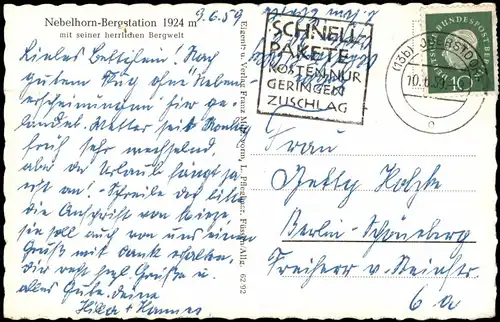 Nebelhorn-Bergstation 1924 m
mit seiner herrlichen Bergwelt
9.6.59
Liebes Bettlein! Nach
gutem Flug ohne "Neben-
erscheinungen" hier ge-
landet. Wetter seit Montag
früh sehr wechselnd,
aber der Urlaub fängt ja
erst an! Schreibe der bitte
die Anschrift von
sie soll auch von uns einen
Gruß mit Dank erhalten.
Dir recht herzl. Grüße u.
alles Gute. Deine
Hilla + Hannes
Eigentz u. Verlag Franz Milz, L. Pfleghaar, Füssen/Allg. 62/92
SCHNELL
PAKETE
KOSTEN NUR
GERINGEN
ZUSCHLAG
(13b) OBERSTDORF
10.6.59
e
DEUTSCHE BUNDESPOST BERLIN
10
Frau
Betty
Berlin-Schöneberg
Freiherr v. Steinstr.
6 a